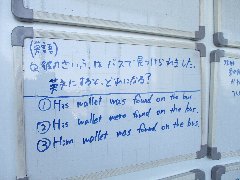 (英語)
Q. 彼のさいふは バスで 見つけられました。
英文にすると、どれになる?
① His wallet was found on the bus.
② His wallet were found on the bus.
③ Him wallet was found on the bus.